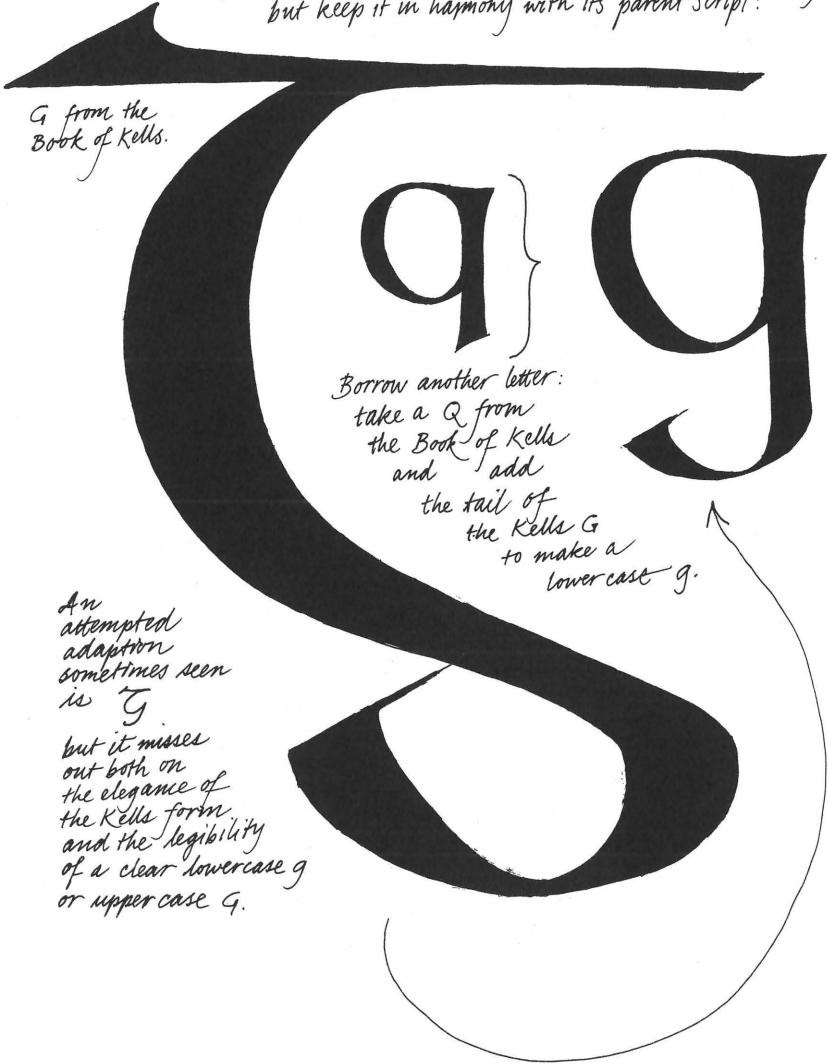 but keep it in harmony with its parent script:
G from the
Book of Kells.
q
g
Borrow another letter:
take a Q from
the Book of Kells
and add
the tail of
the Kells G
to make a
lower case g.
An
attempted
adaption
sometimes seen
is
but it misses
out both on
the elegance of
the Kells form
and the legibility
of a clear lowercase g
or upper case G.